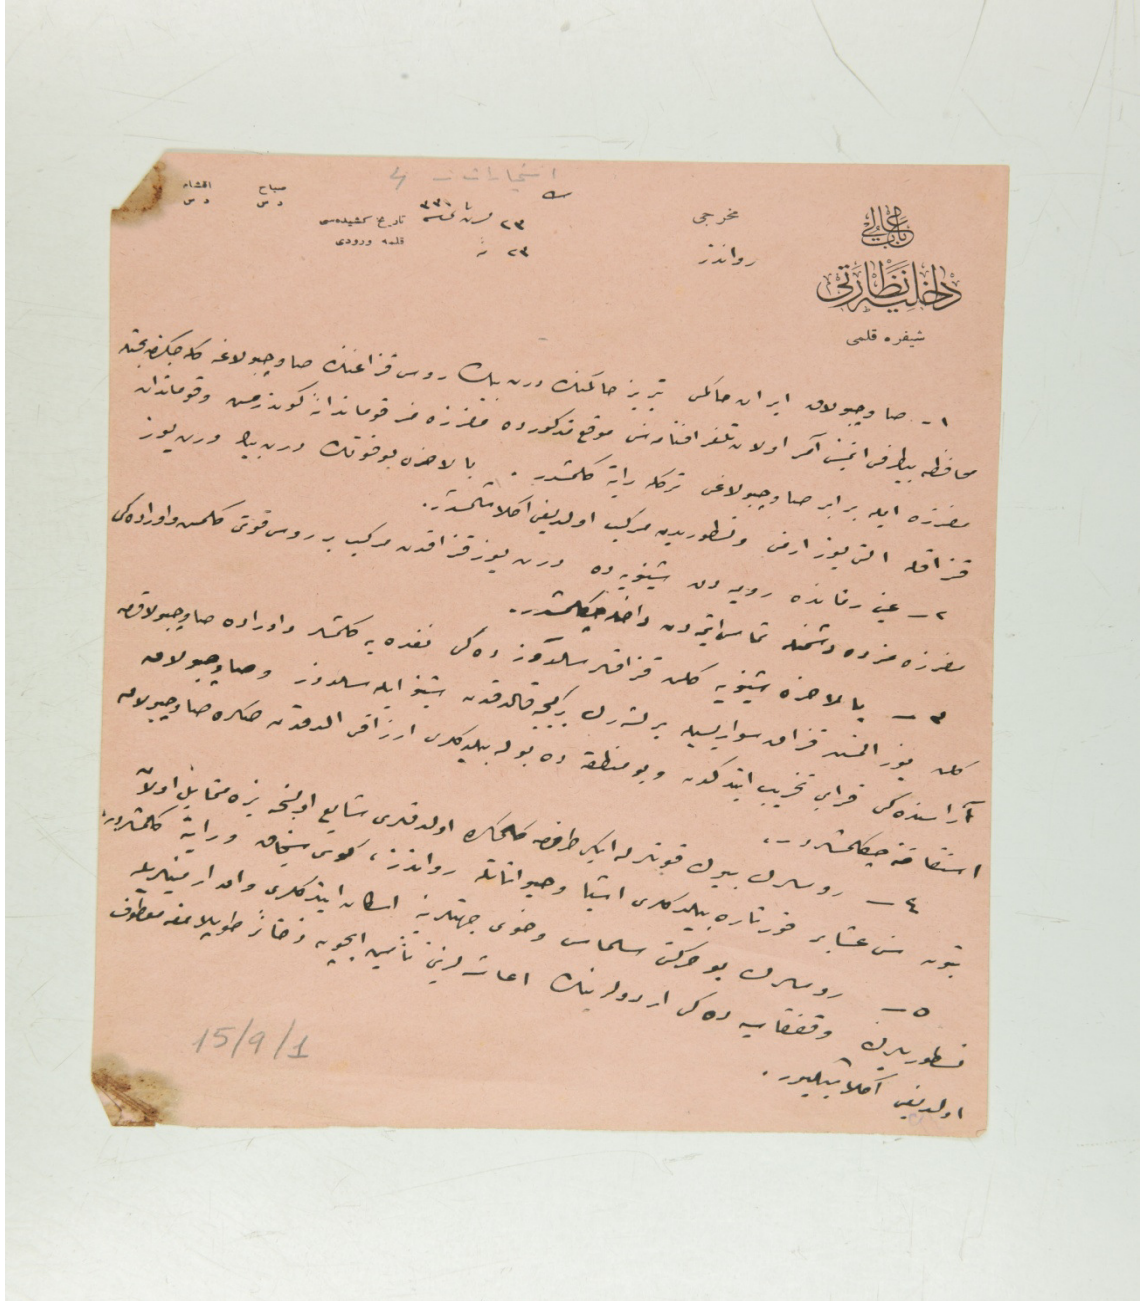 باب عالی
داخلیه نظارتی
شیفره قلمی
مخرجی
رواندز
٢٣ ٣٣١
تاریخ کشیده‌سی
٢٣ نه
قلمه ورودی
صباح
د س
اقشام
د س
١ - صاوجبولاق ایران حاکمی تبریز حاکمنك درت بیك روس قزاغنك صاوجبولاغه کله‌جکنه
محافظه بیطرفی ایتمسنی آمر اولان تلغرافنامه‌سنی موقع مذکورده مفرزه‌مز قوماندانه کوندرمش وقوماندان
مفرزه ایله برابر صاوجبولاغی ترکله رایته کلمشدر . بالاخره بو قوتك درت بیك درت یوز
قزاقله التی یوز ارمنی ونسطوریدن مرکب اولدیغی اکلاشلمشدر.
٢ - عین زمانده رومیه‌دن شینویه ده درت یوز قزاقدن مرکب بر روس قوتی کلمش واوراده‌کی
مفرزه‌مزده دشمنله تماس ایتمه‌دن داخله چکلمشدر.
٣ - بالاخره شینویه کلن قزاقلر سلدوزده‌کی نغده‌یه کلمشلر واوراده صاوجبولاقدن
کلن یوز التمش قزاق سواریسیله برلشه‌رك برکیجه قالدقدن شینو ایله سلدوز وصاوجبولاق
آراسنده‌کی قرایی تخریب ایتدکدن وبو منطقه‌ده بوله بیلدکلری ارزاقی الدقدن صکره صاوجبولاق
استقامتنه چکلمشلردر.
٤ - روسلرك بیوك قوتلرله ایلری طرفه کله‌جك اولدقلری شایع اولنجه بزه متمایل اولان
بتون سنی عشایر قورتاره بیلدکلری اشیا وحیواناتله رواندز، کوی سنجاق ورایته کلمشلردر.
٥ - روسلرك بو حرکتی سلماس وخوی جهتلرینه اسکان ایتدکلری وامدار ارمنیلرله
نسطوریلرك وقفقاسیه‌ده‌کی اردولرینك اعاشه‌لرینی تأمین ایچون ذخائر طوپلامغه معطوف
اولدیغی اکلاشیلیور.
15/9/1